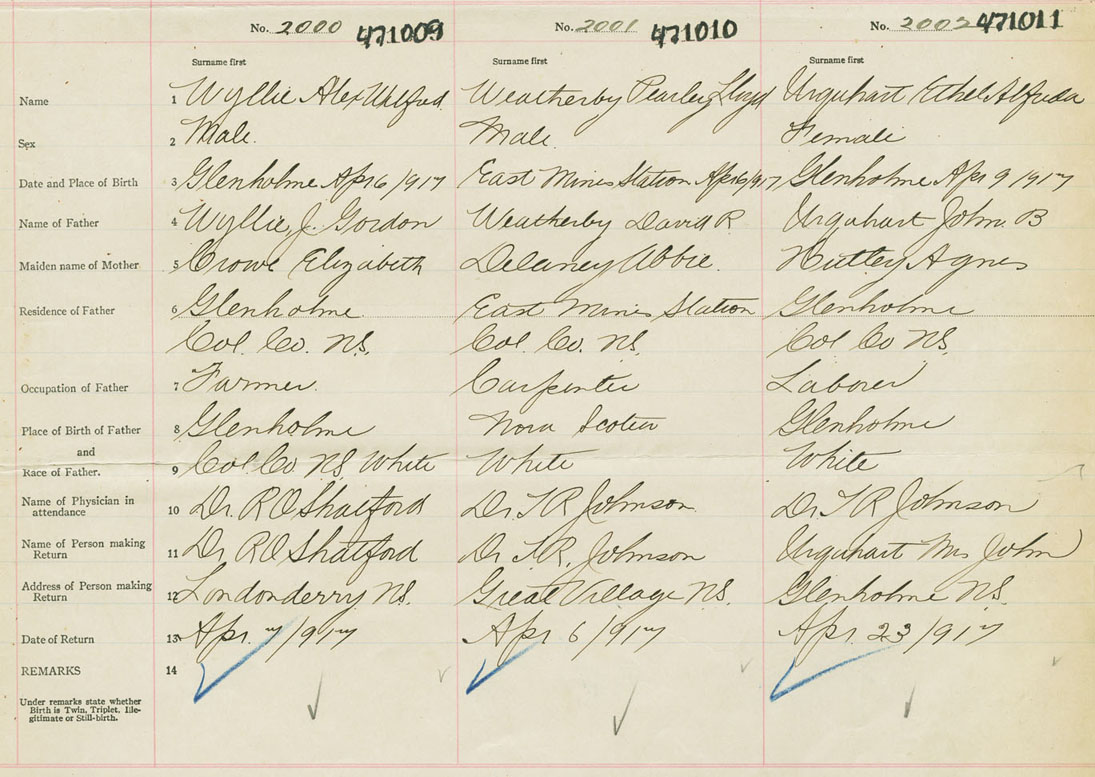 No. 2000 471009 No. 2001 471010 No. 2002 471011
Surname first Surname first Surname first
Name 1 Wyllie Alex Walfred Weatherby Pearley Lloyd Urquhart Ethel Alfreda
Sex 2 Male. Male. Female
Date and Place of Birth 3 Glenholme Apr 6 1917 East Mines Station Apr 1917 Glenholme Apr 9 1917
Name of Father 4 Wyllie, J. Gordon Weatherby David R. Urquhart John. B
Maiden name of Mother 5 Crowe Elizabeth Delaney Abbie. Agnes
Residence of Father 6 Glenholme East Mines Station Glenholme
Col. Co. N.S. Col. Co. N.S. Col Co N.S.
Occupation of Father 7 Farmer. Carpenter Laborer
Place of Birth of Father 8 Glenholme Nova Scotia Glenholme
and
Race of Father. 9 Col. Co N.S. White White White
Name of Physician in
attendance 10 Dr. R O Shatford Dr. T R Johnson Dr T R Johnson
Name of Person making
Return 11 Dr R O Shatford Dr T. R. Johnson Urquhart Mrs John
Address of Person making
Return 12 Londonderry N.S. Great Village N.S. Glenholme N.S.
Date of Return 13 Apr. 7/1917 Apr 6/1917 Apr 23/1917
REMARKS 14
Under remarks state whether
Birth is Twin, Triplet, Ille-
gitimate or Still-birth.